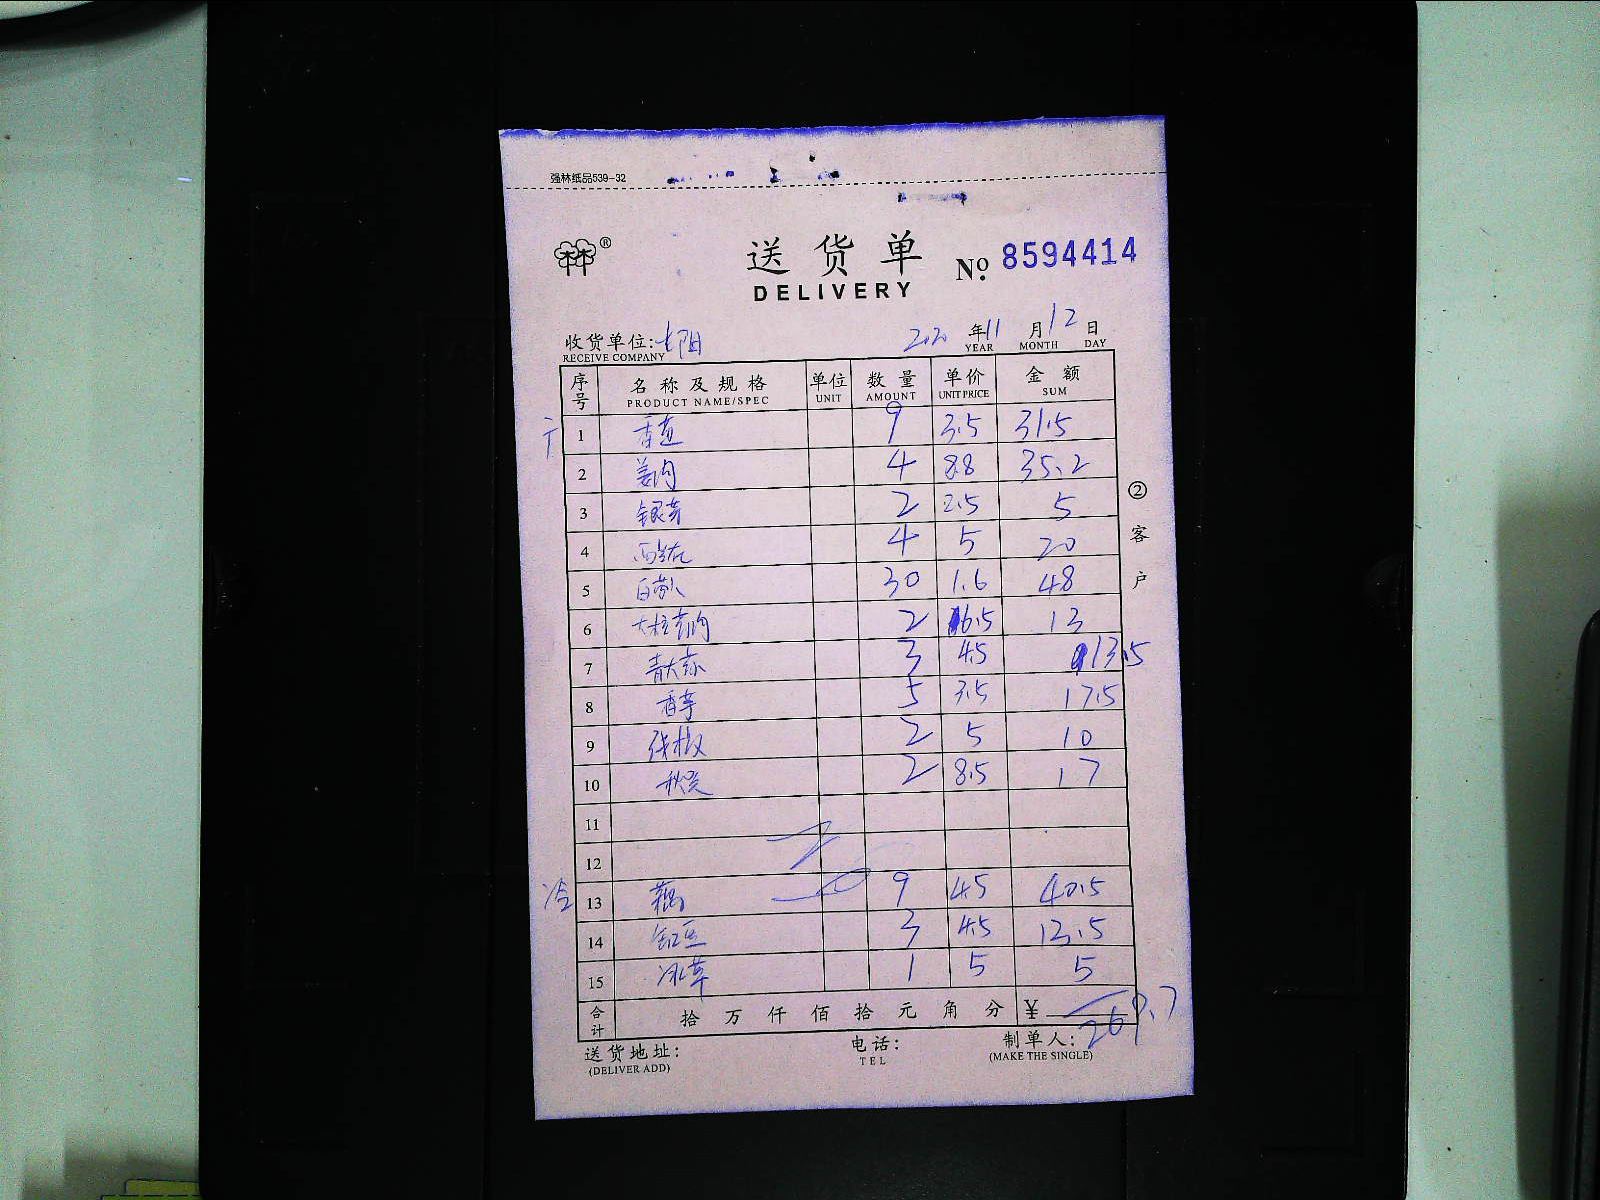 强林纸品539-32
®
送货单 № 8594414
DELIVERY
收货单位: 2020 年 11 月 12 日
RECEIVE COMPANY YEAR MONTH DAY
序号 名称及规格 单位 数量 单价 金额
PRODUCT NAME/SPEC UNIT AMOUNT UNIT PRICE SUM
1 9 3.5 31.5
2 姜肉 4 8.8 35.2
3 银芽 2 2.5 5
4 4 5 20
5 30 1.6 48
6 2 6.5 13
7 3 4.5 13.5
8 香芋 5 3.5 17.5
9 线椒 2 5 10
10 秋葵 2 8.5 17
11
12
冷 13 藕 9 4.5 40.5
14 缸豆 3 4.5 13.5
15 冰草 1 5 5
合计 拾 万 仟 佰 拾 元 角 分 ¥ 269.7
送货地址: 电话: 制单人:
(DELIVER ADD) TEL (MAKE THE SINGLE)
②客户